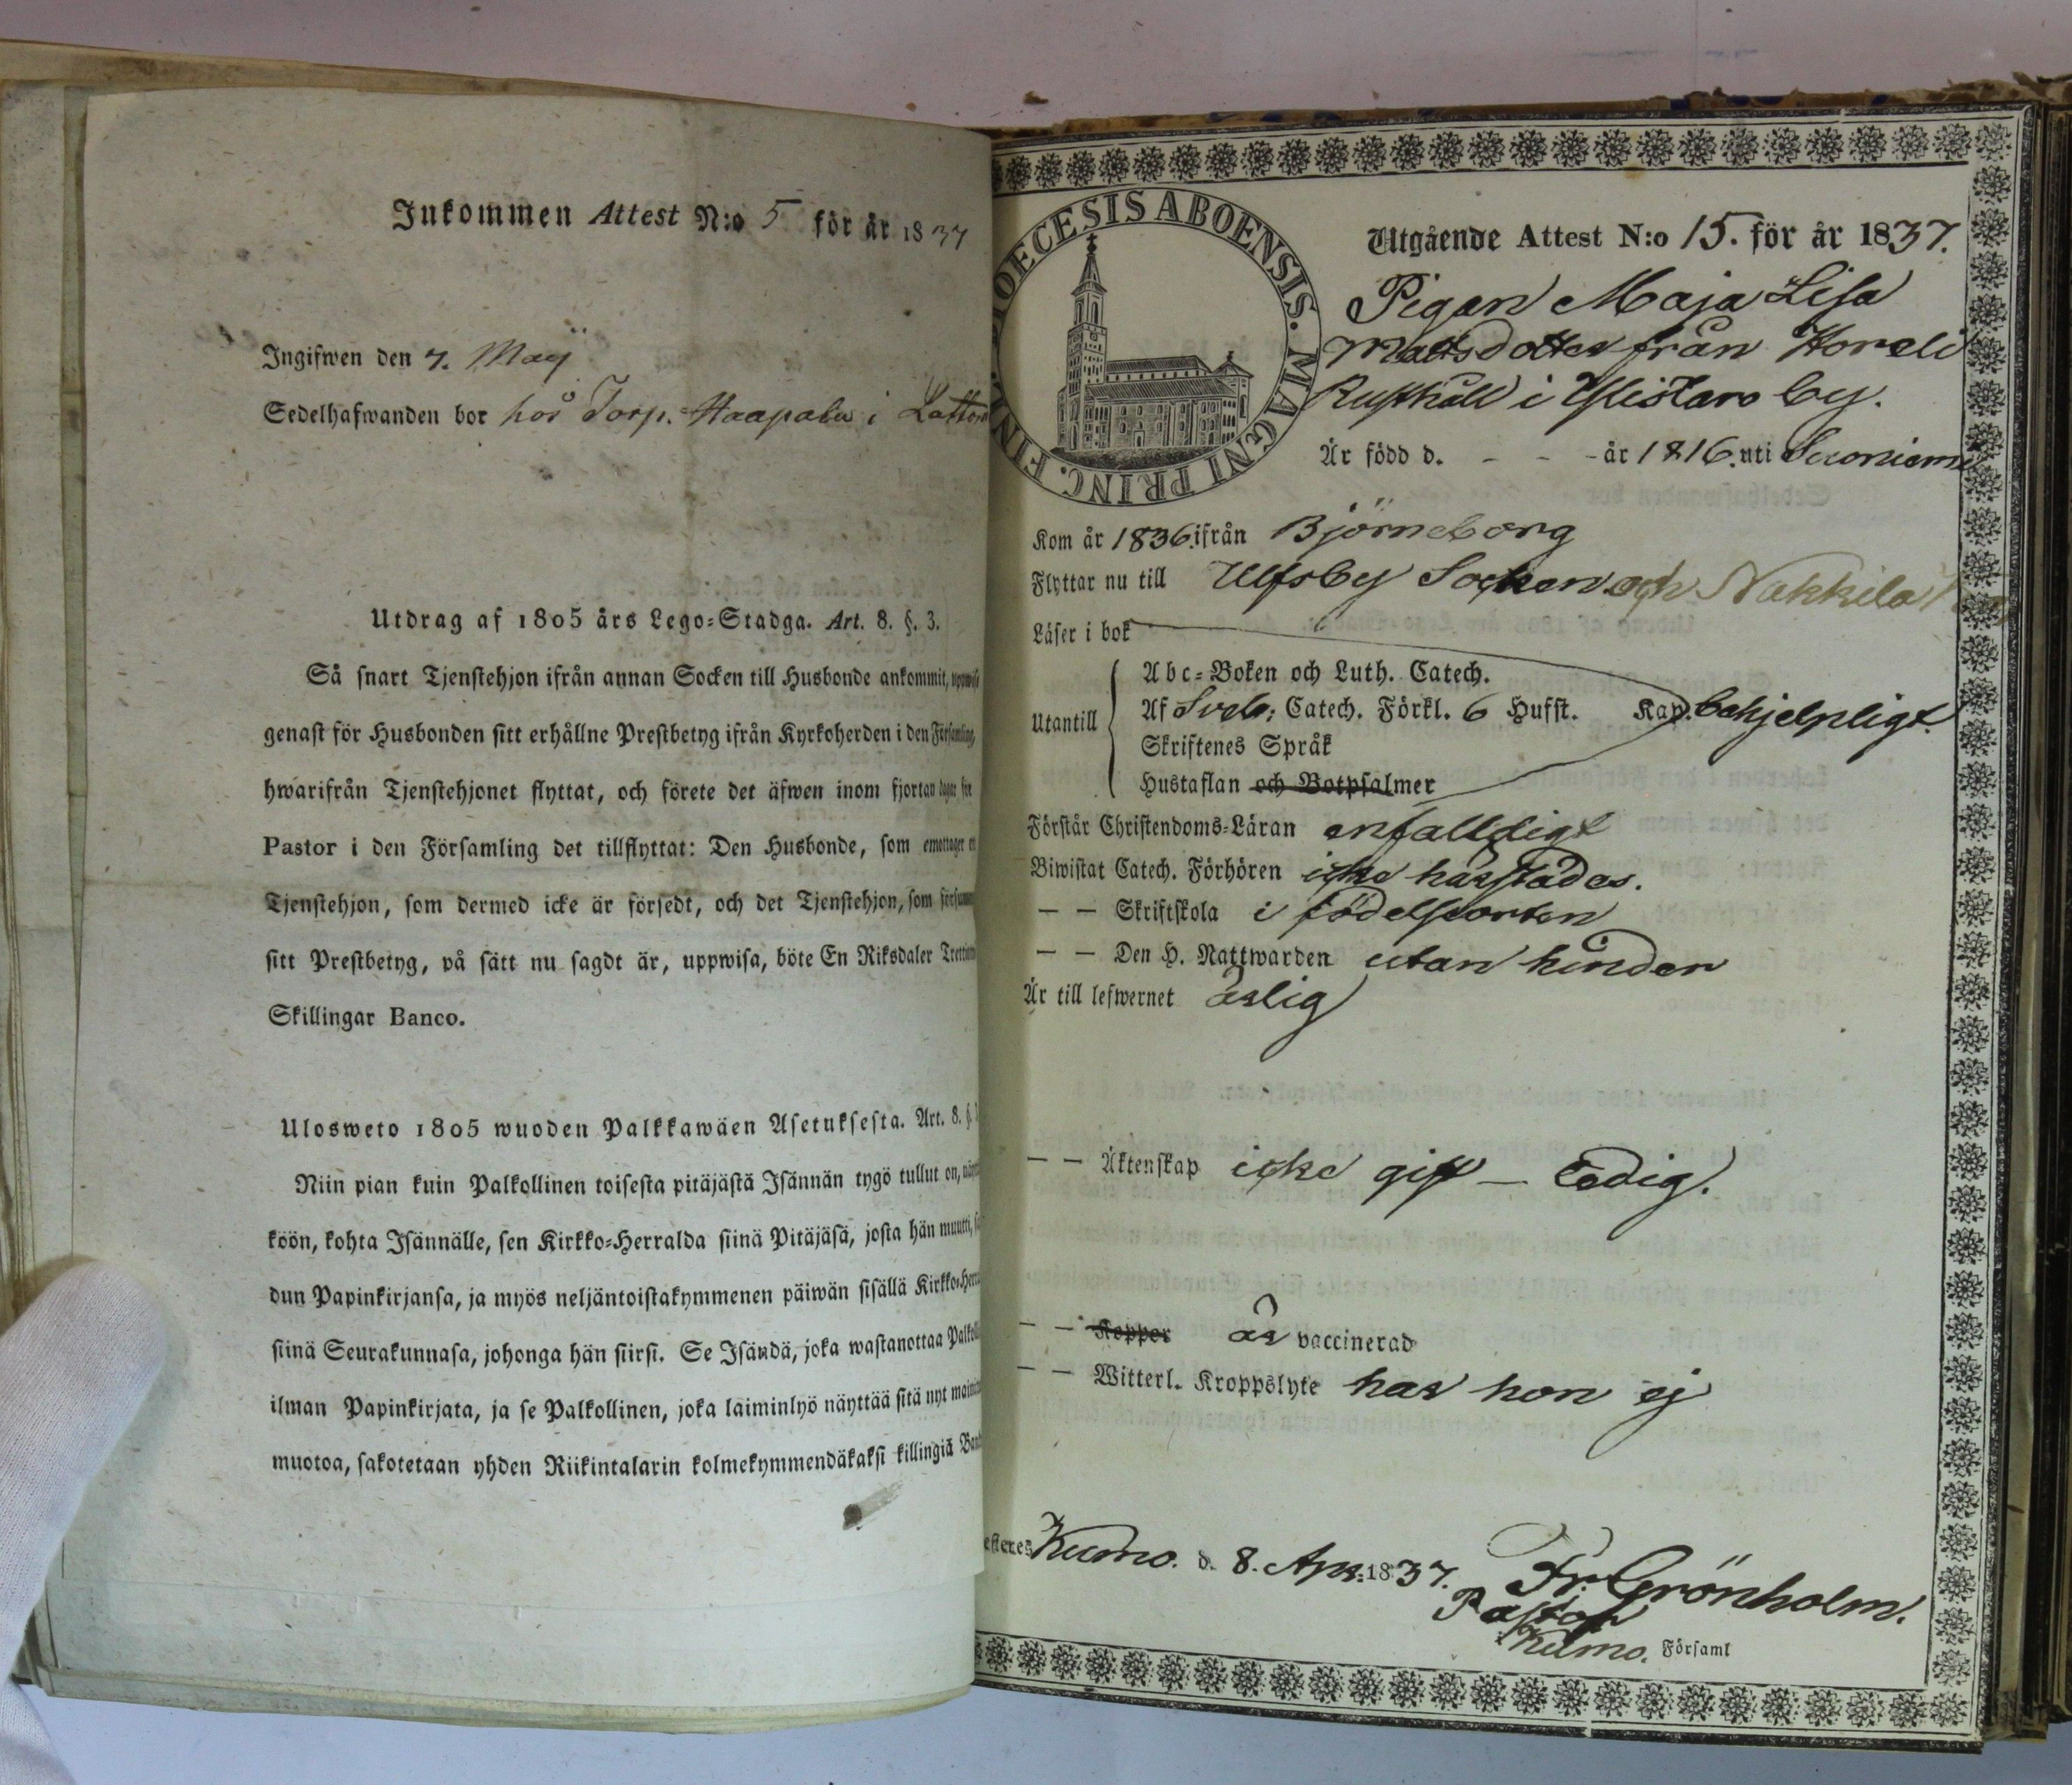 Inkommen Attest N:o 5 för år 1837
Ingifwen den 7. Maÿ
Sedelhafwanden bor hos Torp. Haapala i
Utdrag af 1805 års Lego-Stadga. Art. 8. §. 3.
Så snart Tjenstehjon ifrån annan Socken till Husbonde ankommit,
genast för Husbonden sitt erhållne Prestbetyg ifrån Kyrkoherden i den
hwarifrån Tjenstehjonet flyttat, och förete det äfwen inom fjortan dagar för
Pastor i den Församling det tillflyttat: Den Husbonde, som emottager
Tjenstehjon, som dermed icke är försedt, och det Tjenstehjon, som
sitt Prestbetyg, på sätt nu sagdt är, uppwisa, böte En Riksdaler
Skillingar Banco.
Ulosweto 1805 wuoden Palkkawäen Asetuksesta. Art. 8. §.
Niin pian kuin Palkollinen toisesta pitäjästä Isännän tygö tullut on,
köön, kohta Isännälle, sen Kirkko-Herralda siinä Pitäjäsä, josta hän muutti,
dun Papinkirjansa, ja myös neljäntoistakymmenen päiwän sisällä
siinä Seurakunnasa, johonga hän siirsi. Se Isändä, joka wastanottaa
ilman Papinkirjata, ja se Palkollinen, joka laiminlyö näyttää sitä nyt
muotoa, sakotetaan yhden Riikintalarin kolmekymmendäkaksi killingiä
DIOECESIS ABOENSIS. MAGNI PRINC. FINL.
Utgående Attest N:o 15. för år 1837.
Pigan Maja Lisa
Mattsdotter från Horeli
Rusthåll i Ylistaro by.
Är född d. - - - år 1816. uti
Kom år 1836. ifrån Björneborg
Flyttar nu till Ulfsby Socken och Nakkila
Läser i bok
Utantill
Abc-Boken och Luth. Catech.
Af Sveb: Catech. Förkl. 6 Hufst. Kap. behjelpligt.
Skriftenes Språk
Hustaflan och Botpsalmer
Förstår Christendoms-Läran enfalldigt
Biwistat Catech. Förhören icke härstädes.
— — Skriftskola i födelseorten
— — Den H. Nattwarden utan hinder
Är till lefwernet ärlig
— — Äktenskap icke gift — Ledig.
— — Koppor är vaccinerad
— — Witterl. Kroppslyte har hon ej
Kumo. d. 8. Apr. 1837. Fr. Grönholm.
Pastor
i Kumo. Församl